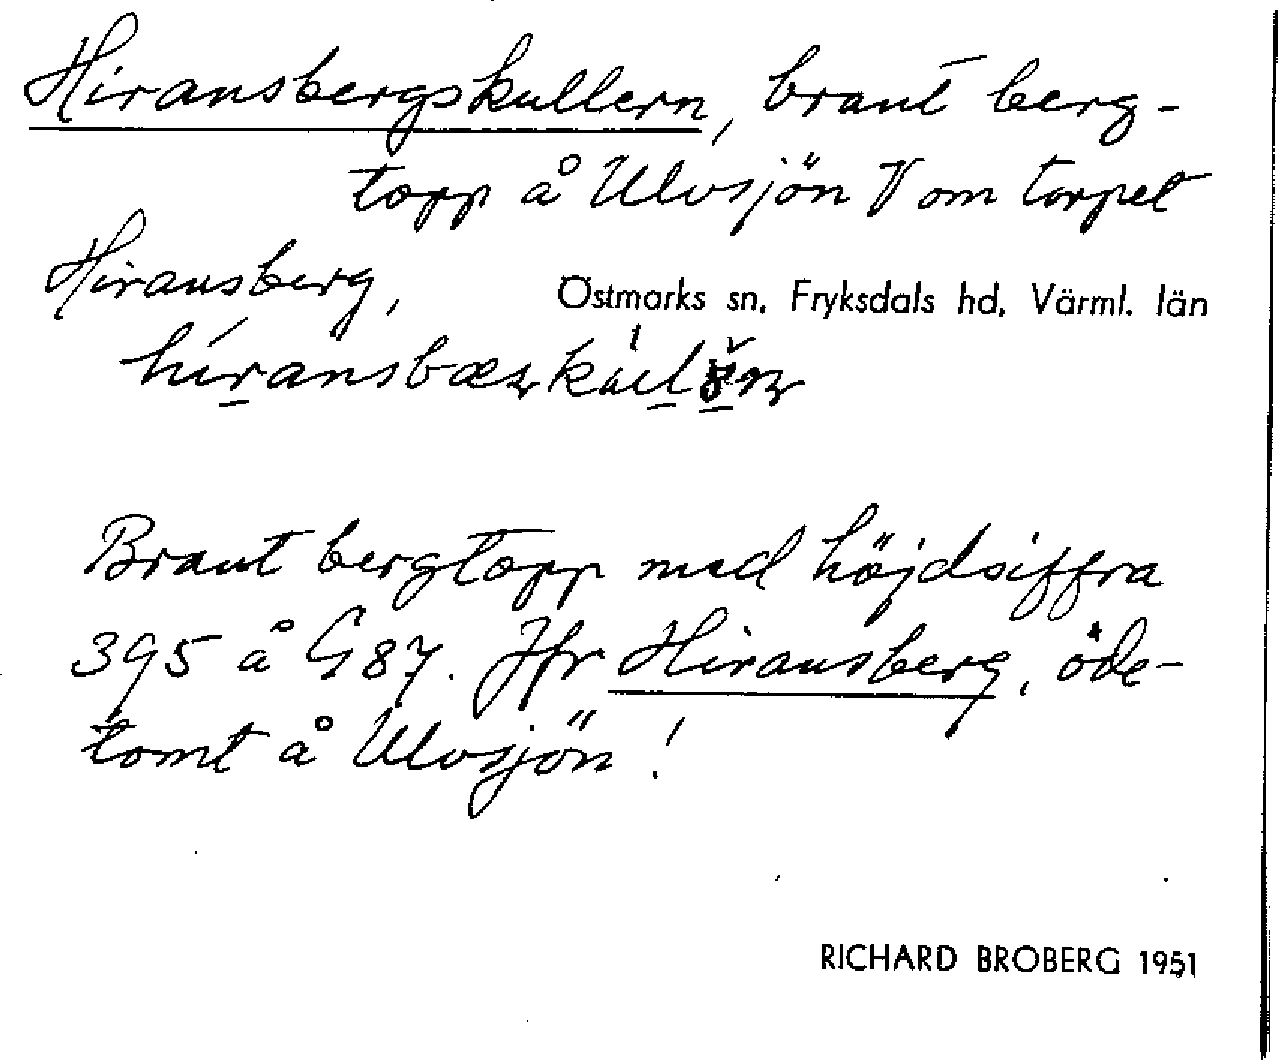 Hiransbergskullern, brant berg-
topp å Ulvsjön V om torpet
Hiransberg,
Östmarks sn. Fryksdals hd. Värml. län
Brant bergtopp med höjdsiffra
395 å G87. Jfr Hiransberg, öde-
tomt å Ulvsjön!
RICHARD BROBERG 1951